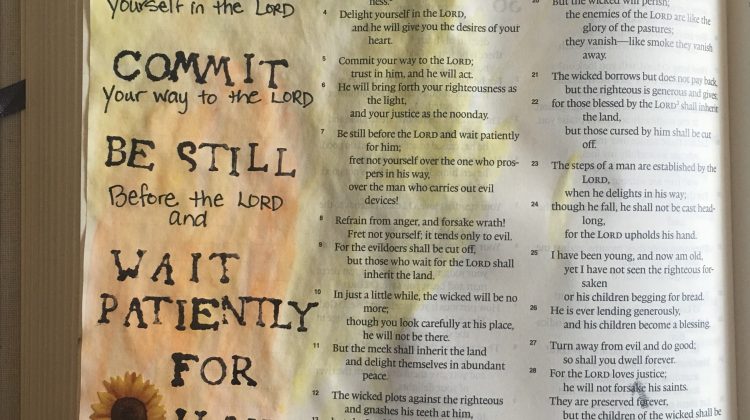 yourself in the LORD
COMMIT
Your way to the LORD
BE STILL
Before the LORD
and
WAIT
PATIENTLY
FOR
ness."
4 Delight yourself in the LORD,
and he will give you the desires of your
heart.
5 Commit your way to the LORD;
trust in him, and he will act.
6 He will bring forth your righteousness as
the light,
and your justice as the noonday.
7 Be still before the LORD and wait patiently
for him;
fret not yourself over the one who pros-
pers in his way,
over the man who carries out evil
devices!
8 Refrain from anger, and forsake wrath!
Fret not yourself; it tends only to evil.
9 For the evildoers shall be cut off,
but those who wait for the LORD shall
inherit the land.
10 In just a little while, the wicked will be no
more;
though you look carefully at his place,
he will not be there.
11 But the meek shall inherit the land
and delight themselves in abundant
peace.
12 The wicked plots against the righteous
and gnashes his teeth at him,
20 But the wicked will perish;
the enemies of the LORD are like the
glory of the pastures;
they vanish—like smoke they vanish
away.
21 The wicked borrows but does not pay back,
but the righteous is generous and gives;
22 for those blessed by the LORD shall inherit
the land,
but those cursed by him shall be cut
off.
23 The steps of a man are established by the
LORD,
when he delights in his way;
24 though he fall, he shall not be cast head-
long,
for the LORD upholds his hand.
25 I have been young, and now am old,
yet I have not seen the righteous for-
saken
or his children begging for bread.
26 He is ever lending generously,
and his children become a blessing.
27 Turn away from evil and do good;
so shall you dwell forever.
28 For the LORD loves justice;
he will not forsake his saints.
They are preserved forever,
but the children of the wicked shall be